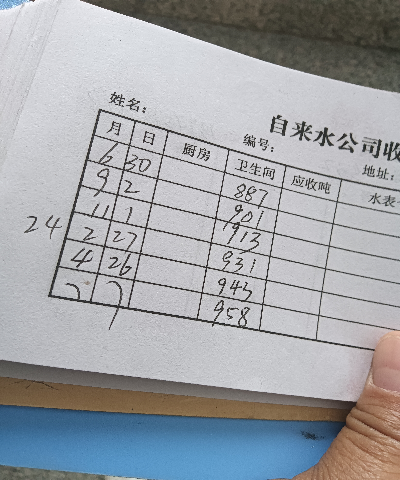 自来水公司收
姓名： 编号： 地址：
月 日 厨房 卫生间 应收吨 水表
6 30 887
9 2 901
11 1 913
24 2 27 931
4 26 943
7 7 958